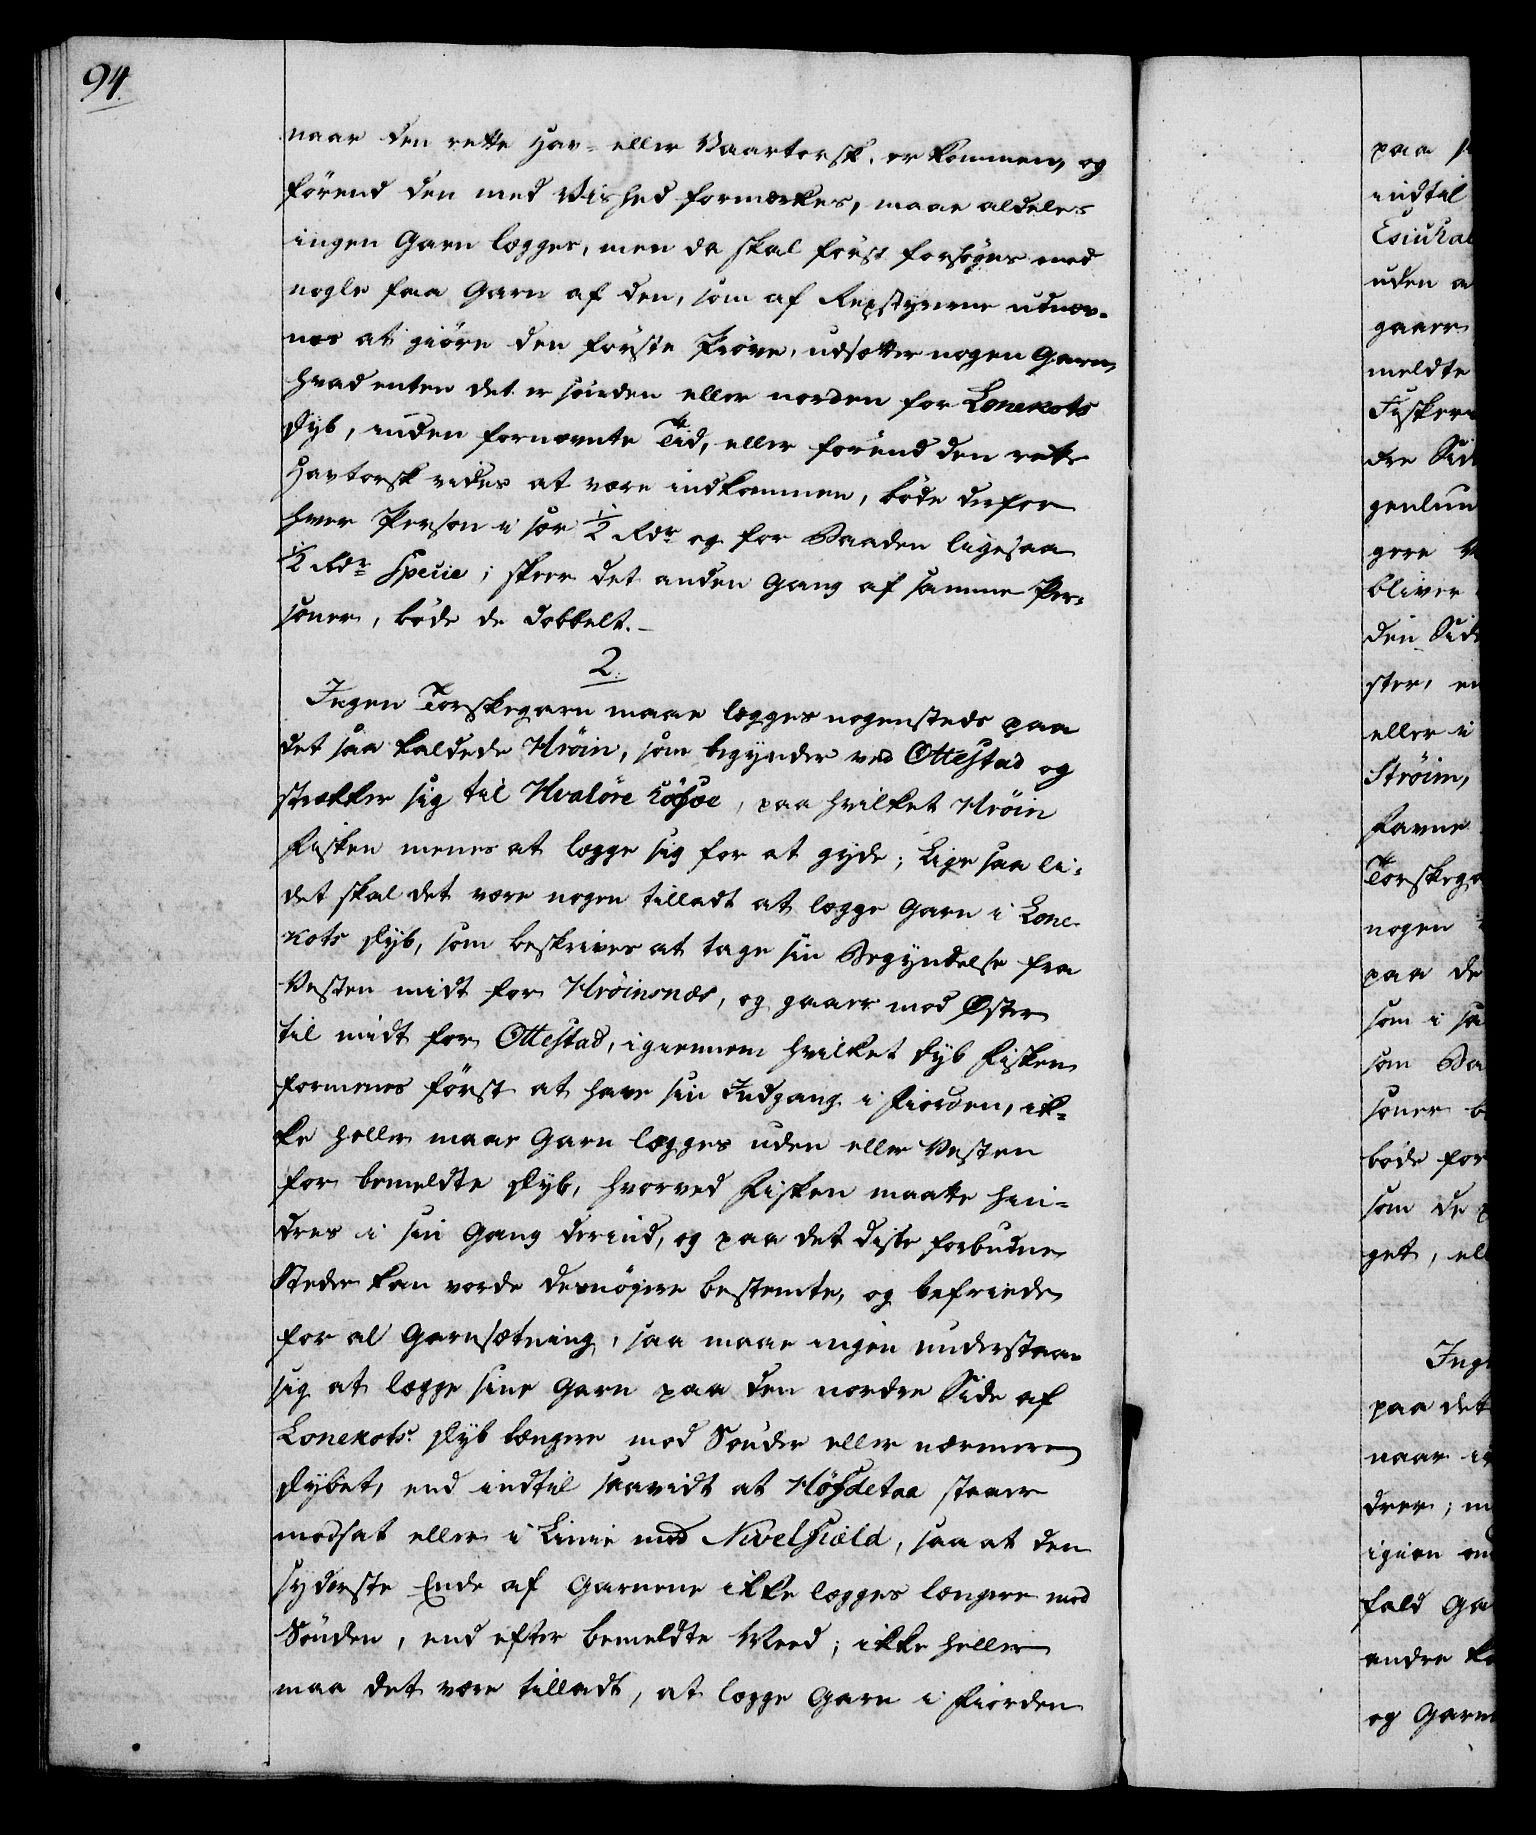 94.
naar den rette Hav- eller Vaartorsk er kommen, og
förend den med Vished formærkes, maae aldeles
ingen Garn lægges, men da skal först forsöges med
nogle faa Garn af den, som af Repstyrerne udnæv-
nes at giöre den förste Pröve, udsætter nogen Garn,
hvad enten det er sönden eller norden for Lonekots
Dyb, inden fornævnte Tid, eller forend den rette
Havtorsk vides at være indkommen, böde derfor
hver Person i sær ½ Rdr og for Baaden ligesaa
½ Rdr Specie; skeer det anden Gang af samme Per-
soner, böde de dobbelt.
2.
Ingen Torskegarn maae lægges nogensteds paa
det saa kaldede Hröin, som begynder ved Ottestad og
strækker sig til Hvalöre, paa hvilket Hröin
Fisken menes at lægge sig for at gyde; Lige saa li-
det skal det være nogen tilladt at lægge Garn i Lone-
kots Dyb, som beskrives at tage sin Begyndelse fra
Vesten midt for Hröinsnæs, og gaaer mod Øster
til midt for Ottestad, igiennem hvilket Dyb Fisken
formenes först at have sin Indgang i Fiorden, ik-
ke heller maae Garn lægges uden eller Vesten
for bemeldte Dyb, hvorved Fisken maatte hin-
dres i sin Gang derind, og paa det disse forbudne
Steder kan vorde desnöyere bestemte, og befriede
for al Garnsætning, saa maae ingen understaae
sig at lægge sine Garn paa den nordre Side af
Lonekots Dyb længere mod Sönder eller nærmere
Dybet, end indtil saavidt at Höfdetaa staaer
modsat eller i Linie med Nivelfiæld, saa at den
syderste Ende af Garnene ikke lægges længere mod
Sönden, end efter bemeldte Meed; ikke heller
maa det være tilladt, at lægge Garn i Fiorden
paa
indtil
uden a
gaaer
meldte
Fisker
dre Sid
genlun
gere
bliver
den Sid
ster, en
eller i
Ströim,
Favne
Torskega
nogen
paa de
som i sa
som Ba
soner b
böde for
som de
get, ell
Inge
paa det
naar
drer; m
igien
fald Ga
andre
og Garn